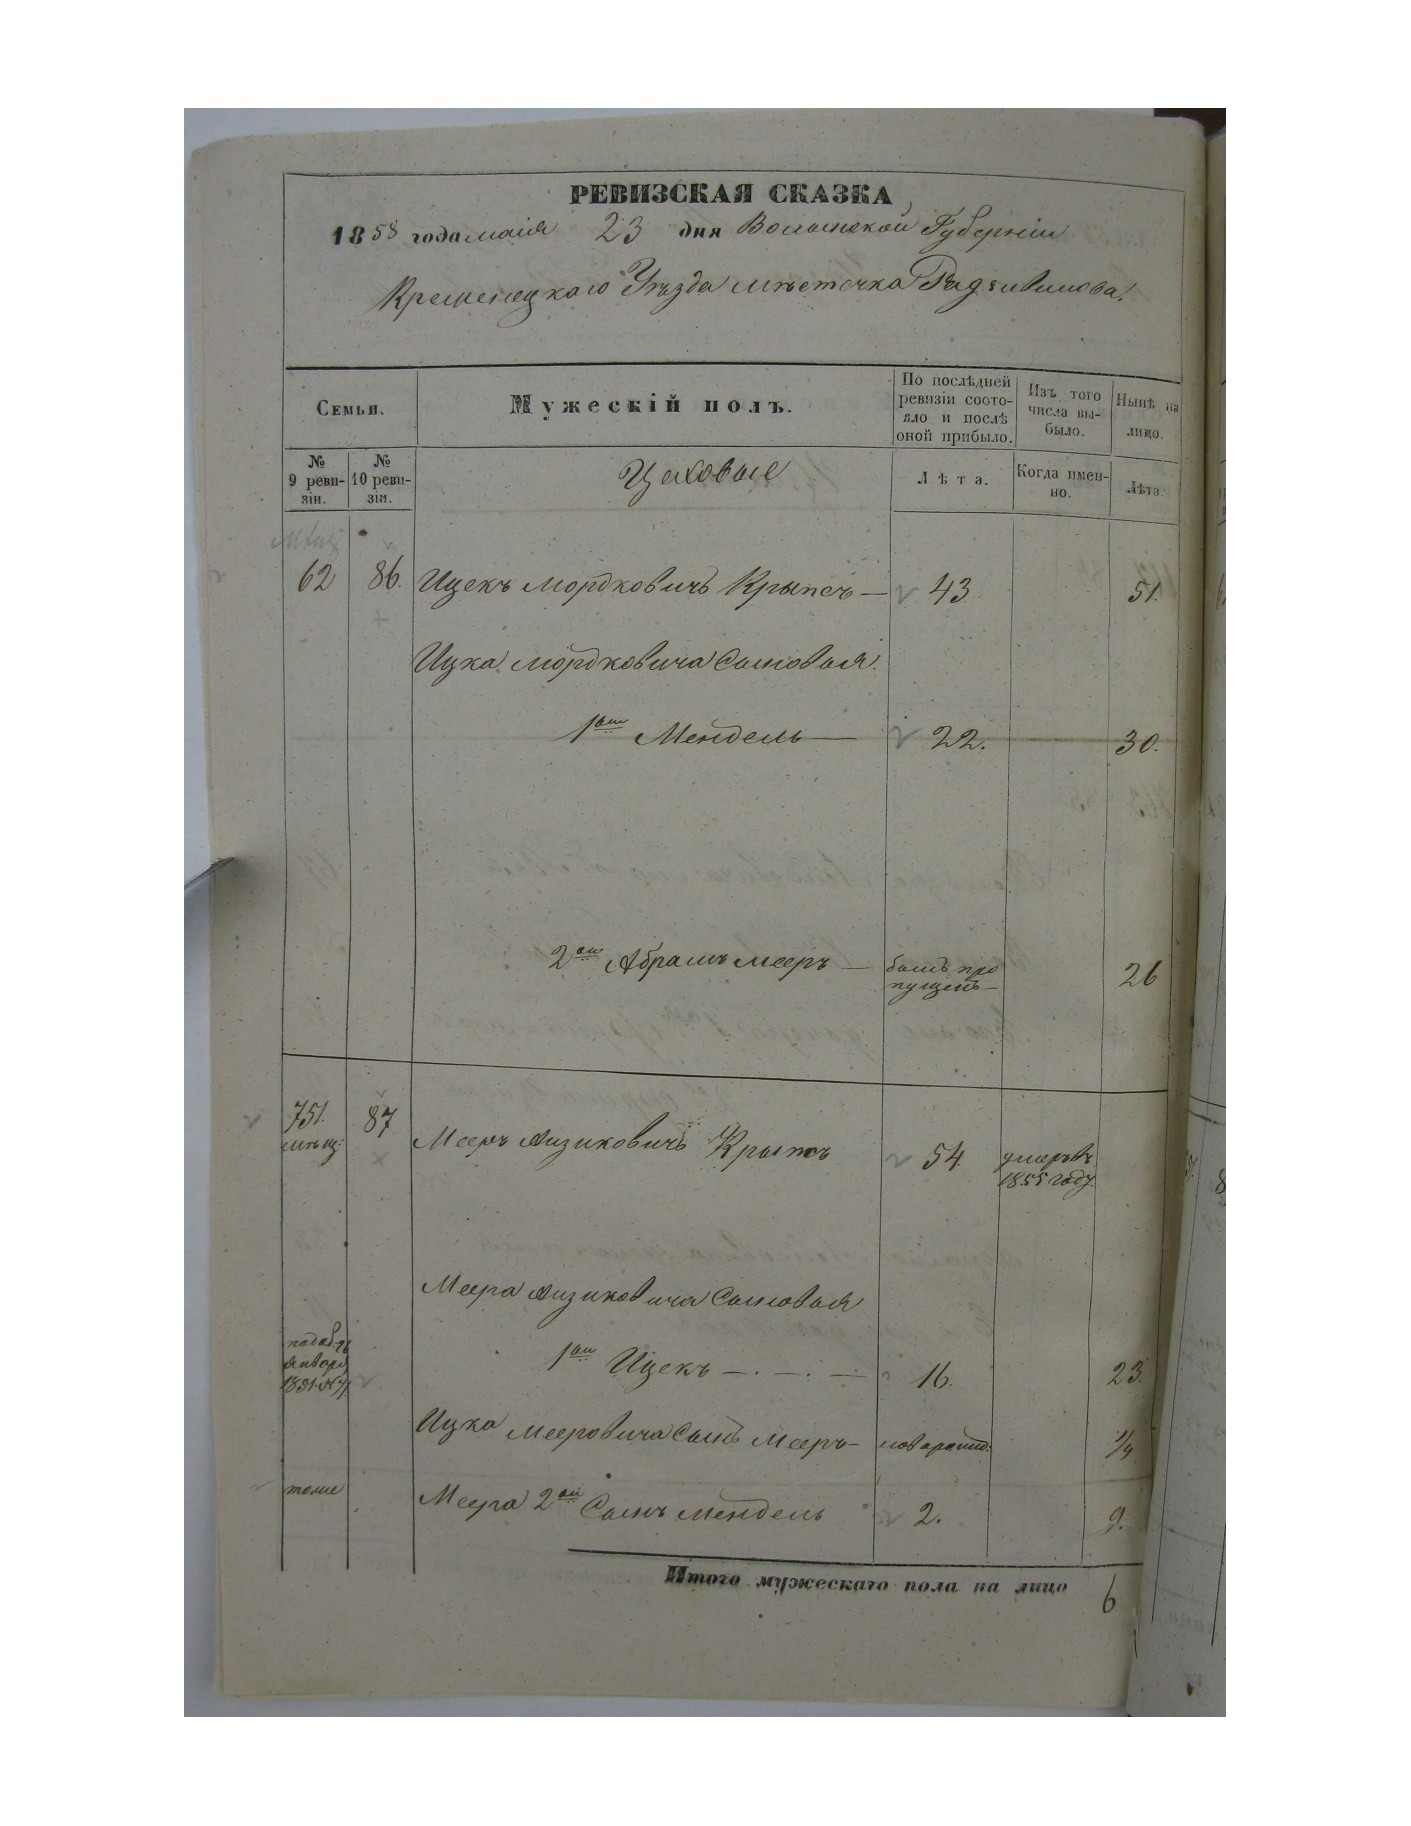 РЕВИЗСКАЯ СКАЗКА
1858 года маія 23 дня Волынской Губерніи
Кременецкаго Уѣзда мѣстечка Радзивилова.
Семьи.
Мужескій полъ.
По послѣдней ревизіи состояло и послѣ оной прибыло.
Изъ того числа выбыло.
Нынѣ на лицо.
№ 9 ревизіи.
№ 10 ревизіи.
Цеховые
Лѣта.
Когда именно.
Лѣта.
62 86. Ицекъ Мордковичъ Крыпсъ — 43 51.
Ицка Мордковича Сыновья.
1ый Мендель — 22. 30.
2ой Абрамъ Мееръ — былъ пропущенъ — 26
751. мѣщ: 87 Мееръ Айзиковичъ Крыпсъ 54. умеръ въ 1855 году.
Меера Айзиковича Сыновья
января
1ый Ицекъ — . — . — 16. 23.
Ицка Мееровича Сынъ Мееръ — новорожд: 1/4
тоже Меера 2ой Сынъ Мендель 2. 9.
Итого мужескаго пола на лицо 6